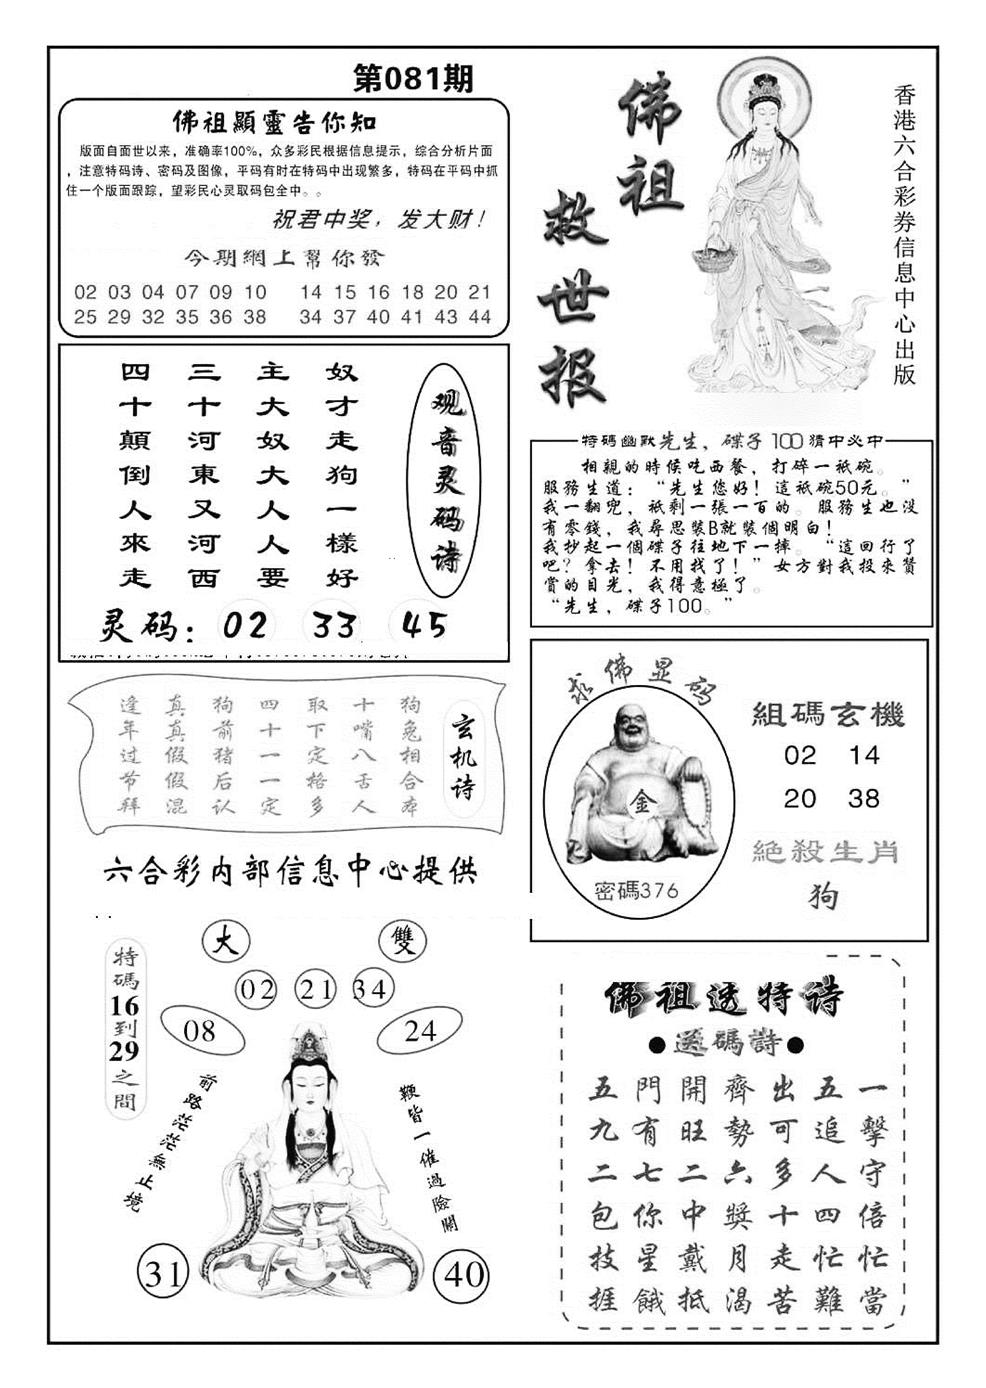 第081期
佛祖顯靈告你知
版面自面世以来，准确率100%，众多彩民根据信息提示，综合分析片面
，注意特码诗、密码及图像，平码有时在特码中出现繁多，特码在平码中抓
住一个版面跟踪，望彩民心灵取码包全中。。
祝君中奖，发大财！
今期網上幫你發
02 03 04 07 09 10 14 15 16 18 20 21
25 29 32 35 36 38 34 37 40 41 43 44
佛祖救世报
香港六合彩券信息中心出版
观音灵码诗
奴才走狗一樣好
主大奴大人人要
三十河東又河西
四十顛倒人來走
灵码：02 33 45
特碼幽默先生，碟子100猜中必中
相親的時候吃西餐，打碎一衹碗。
服務生道：“先生您好！這衹碗50元。”
我一翻兜，衹剩一張一百的。服務生也没
有零錢，我尋思裝B就裝個明白！
我抄起一個碟子往地下一摔。“這回行了
吧？拿去！不用找了！”女方對我投來贊
賞的目光，我得意極了。
“先生，碟子100。”
玄机诗
狗兔相合本
十嘴八舌人
取下定格多
四十一一定
狗前猪后认
真真假假混
逢年过节拜
六合彩内部信息中心提供
求佛显码
金
密碼376
組碼玄機
02 14
20 38
絕殺生肖
狗
大
雙
02 21 34
08
24
特碼16到29之間
前路茫茫無止境
鞭皆一催過險關
31
40
佛祖透特诗
●透碼詩●
一擊守倍忙當
五追人四忙難
出可多十走苦
齊勢六獎月渴
開旺二中戴抵
門有七你星餓
五九二包技捱